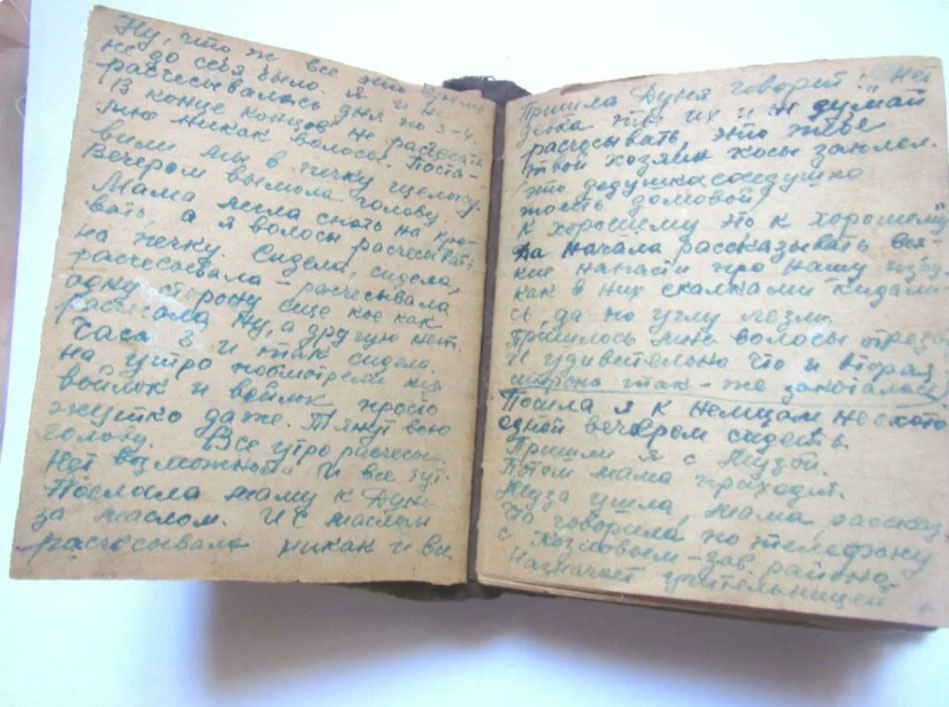 Ну, что ж все это
не до себя было. Я и не
расчесывалась дня по 3-4
В конце концов не расчесать
мню никак волосы. Поста-
вили мы в печку щелоку.
Вечером вымола голову.
Мама легла спать на кро-
вать, а я волосы расчесывать
на печку. Сидела, сидела,
расчесывала – расчесывала
одну сторону еще кое как
расчесала ну, а другую нет.
Часа 3 и так сидела
на утро посмотрели
войлок и войлок просто
жутко даже. Тянут всю
голову. Все утро расчесы-
Нет возможности и все тут.
Послала маму к Дуне
за маслом. И с маслом
расчесывала никак и все.
Пришла Дуня говорит: Нет
детка ты их и не думай
расчесывать это ж тебе
твой хозяин косы заплел.
это дедушка соседушко
тость домовой,
к хорошему это к хорошему"
Да начала рассказывать вся-
кие напасти про нашу избу
как в них скалками кидали
сь да по углу лезли.
Пришлось мне волосы отреза
И удивительно что и вторая
сторона так-же закаталась
Пошла я к немцам не охота
одной вечером сидеть.
Пришли я с Музой.
Потом мама приходит.
Муза ушла, мама рассказ
что говорила по телефону
с Козловым – зав районо
Назначает учительницей